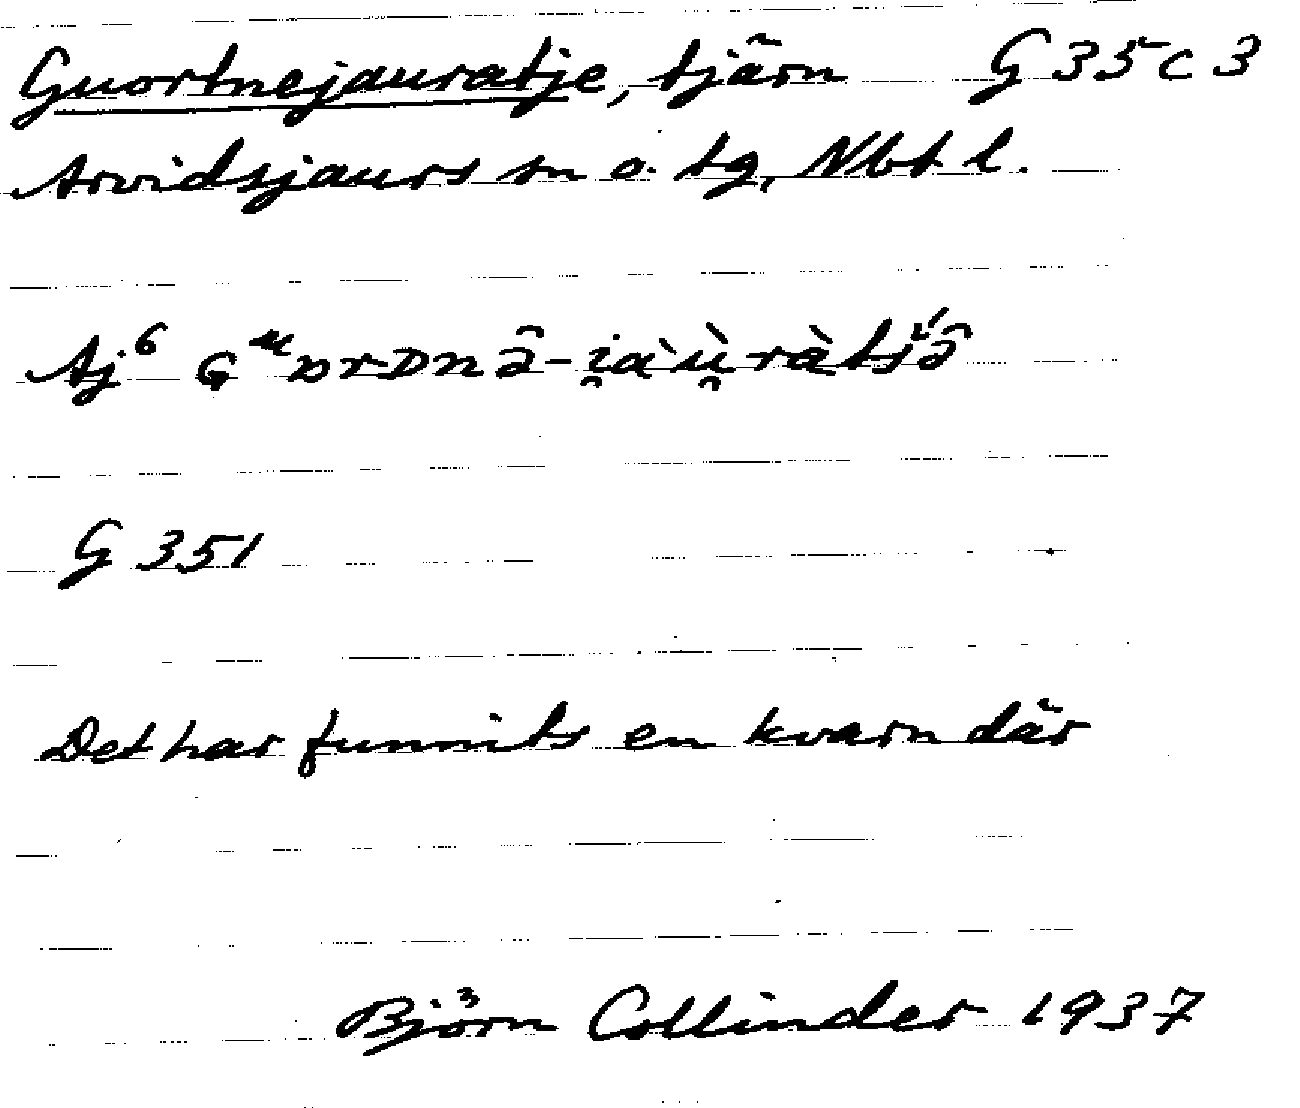 Guortnejauratje, tjärn G 35 c 3
Arvidsjaurs sn o. tg, Nbt l.
Aj⁶ Gᵘɒrᴅnə̑-i̯àù̯ràtśə̑
G 351
Det har funnits en kvarn där
Björn Collinder 1937